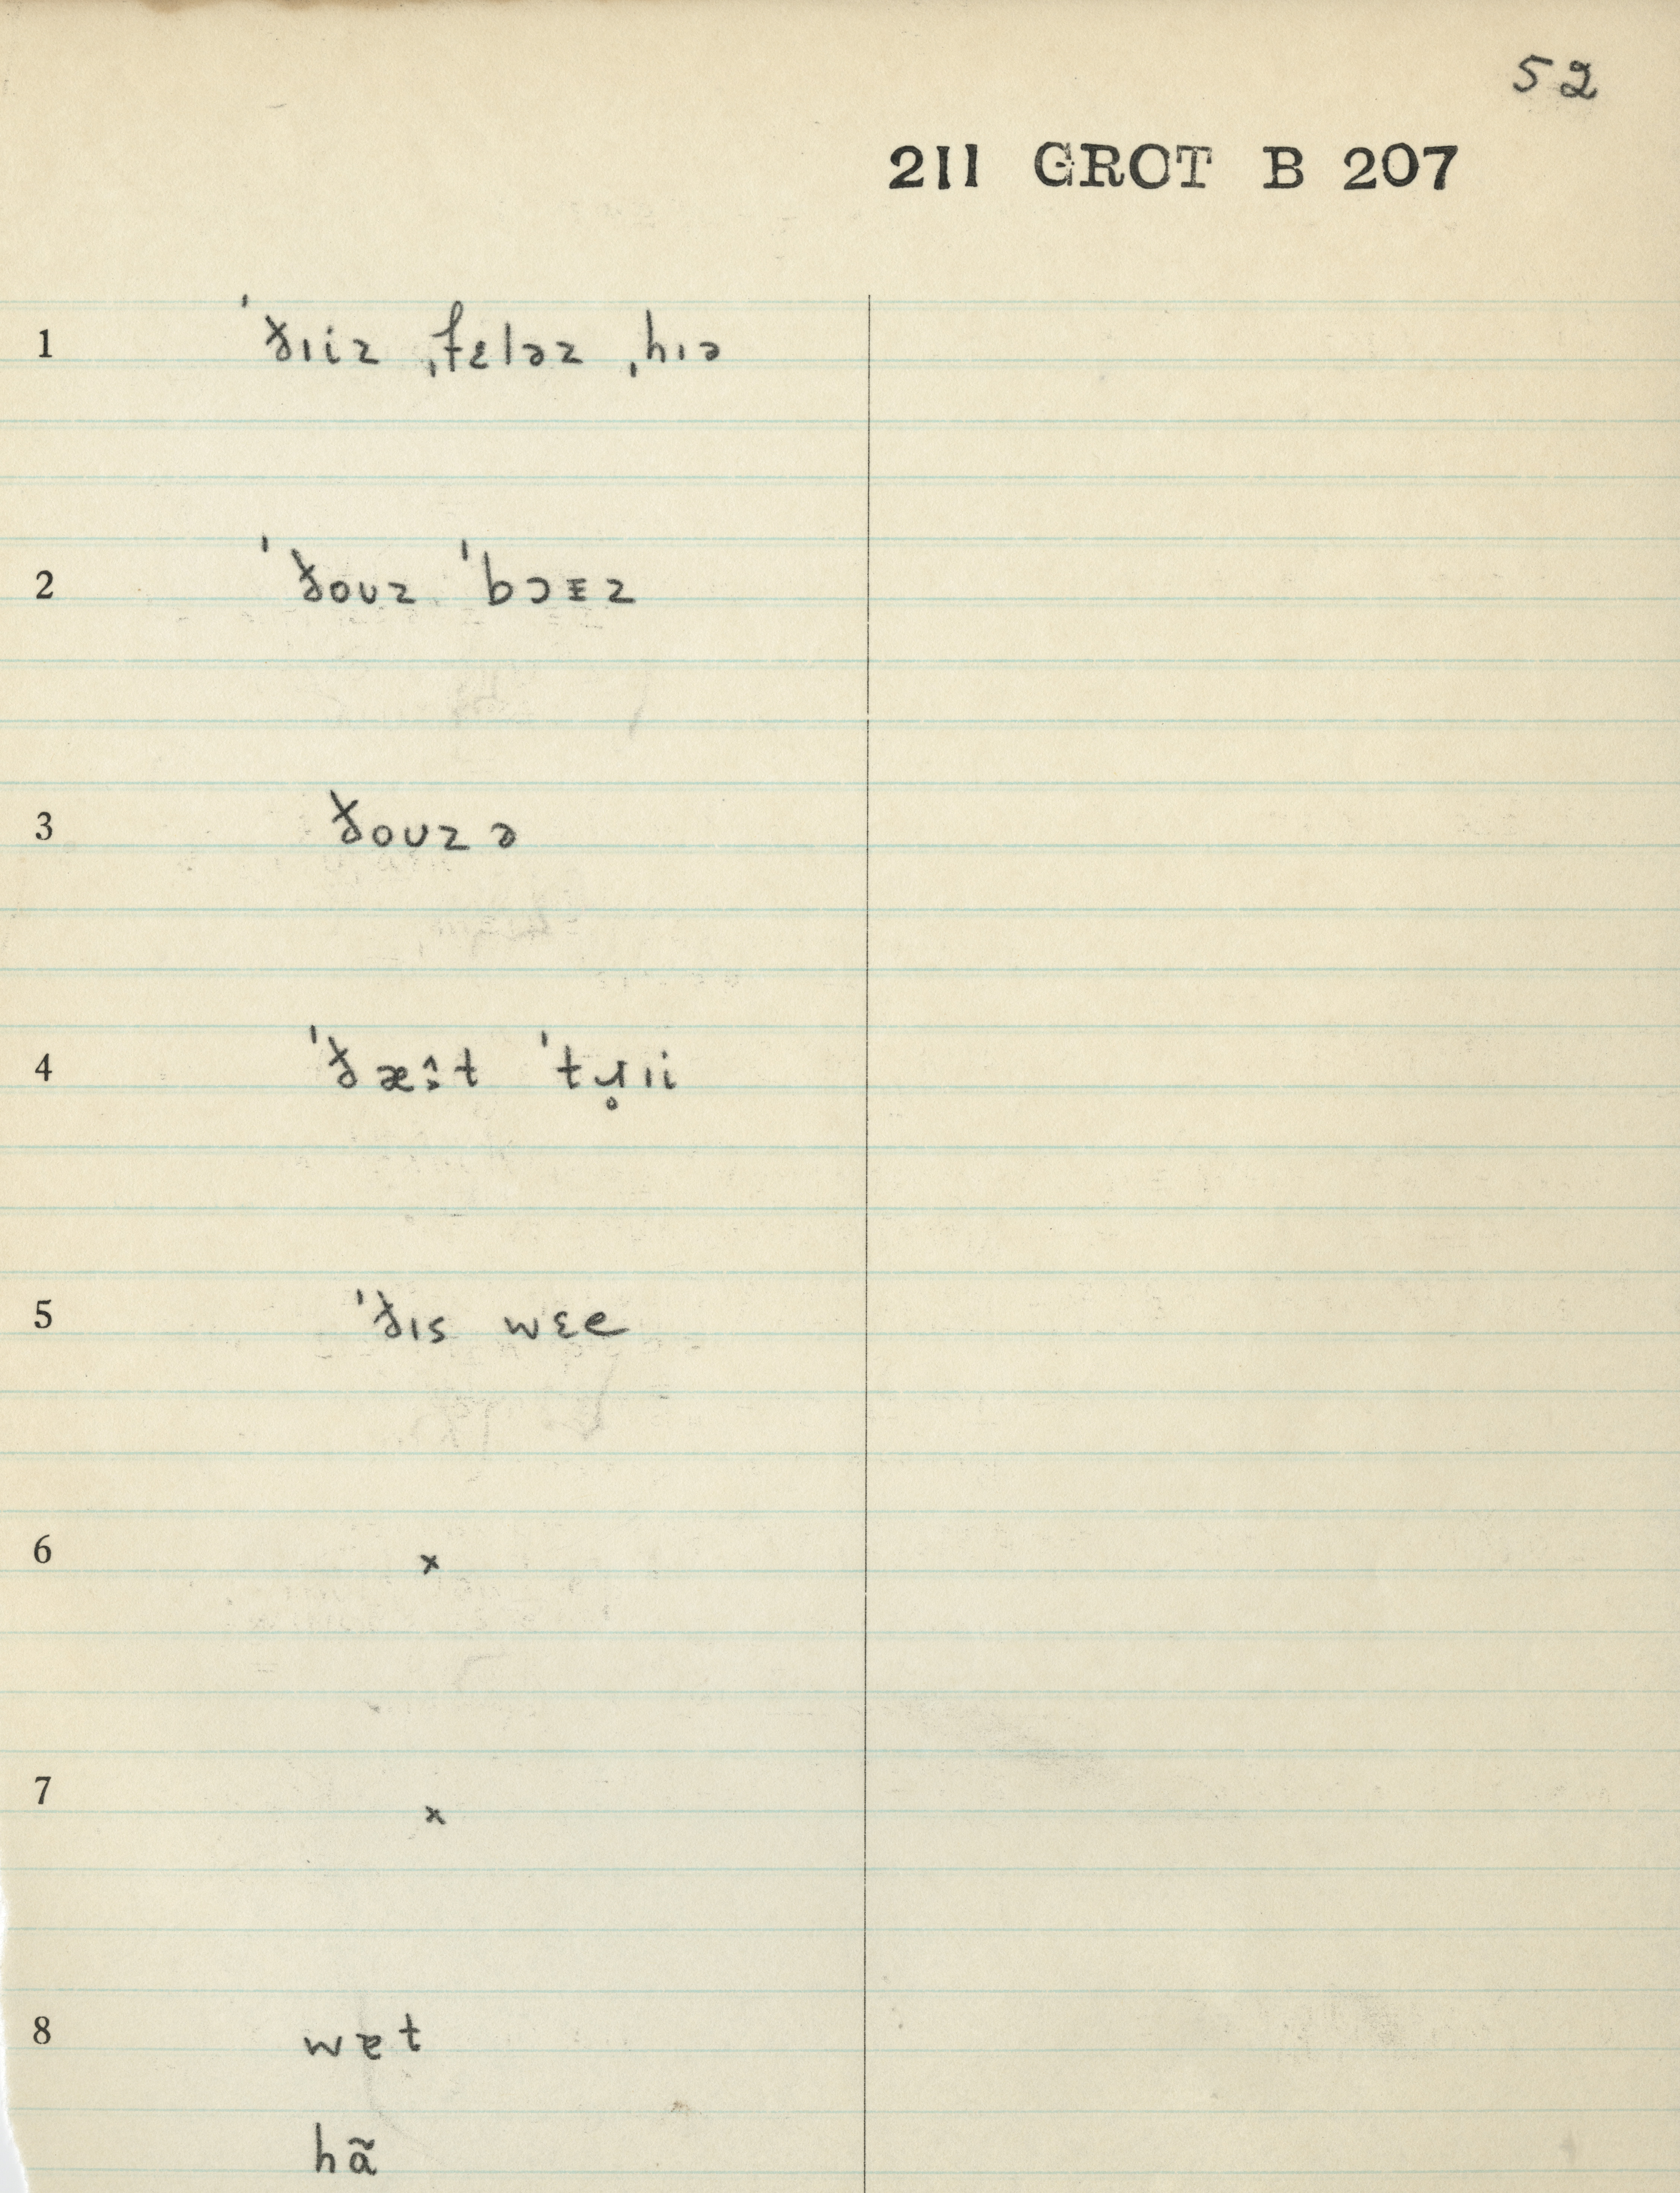 52
211 GROT B 207
1 ˈðɪiz ˌfɛləz ˌhɪə
2 ˈðoʊz ˈbɔɪz
3 ðoʊzə
4 ˈðæ:t ˈtɹ̥ɪi
5 ˈðɪs wɛe
6 x
7 x
8 wɐt
hã